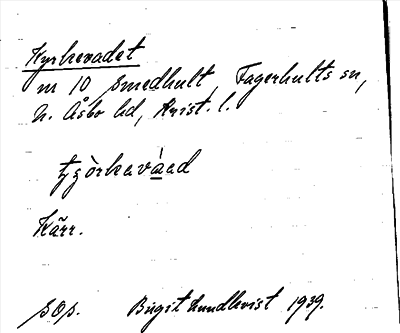 Kyrkevadet
m 10 Smedhult, Fagerhults sn,
N. Åsbo hd, Krist. l.
tʒòrkavàad
Kärr.
sOp. Birgit Lundkvist 1939.